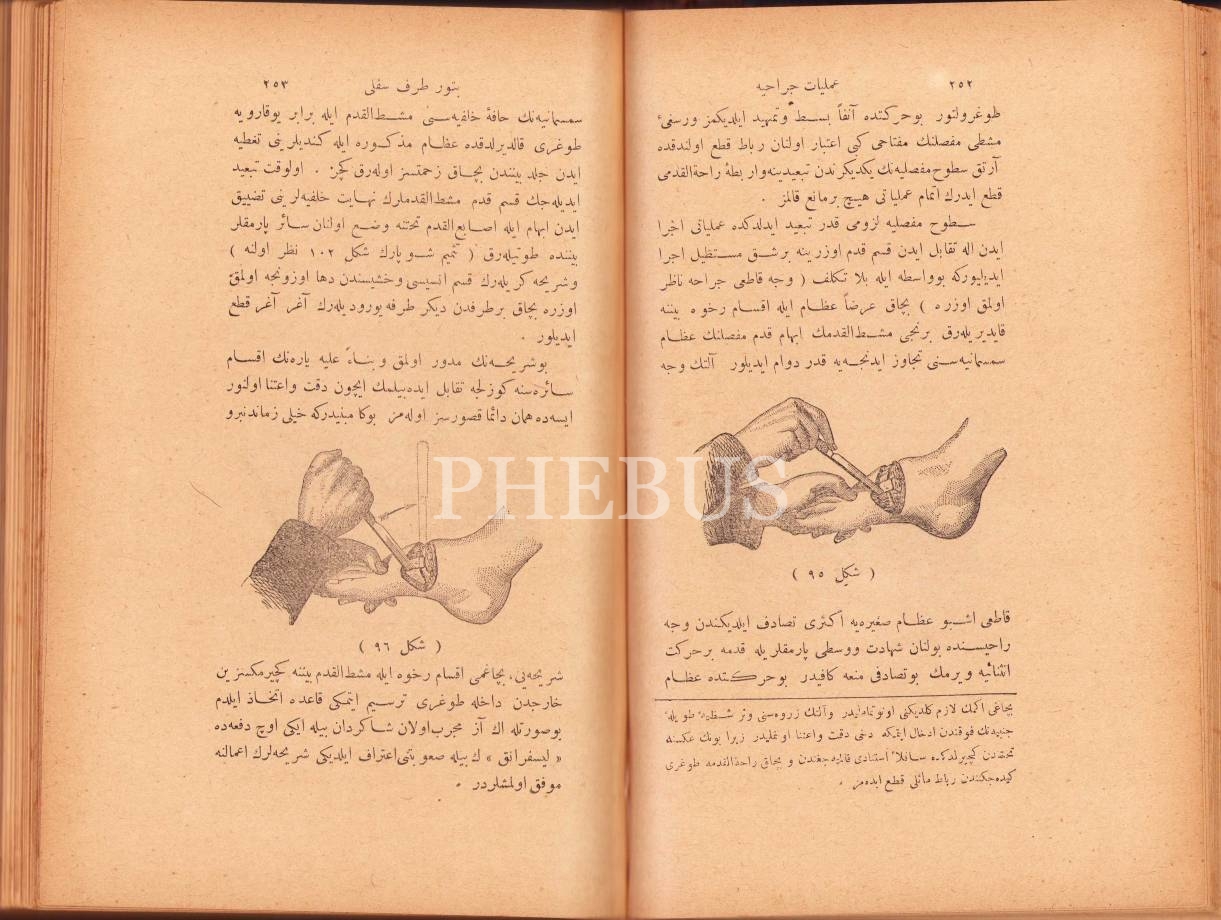 ٢٥٢ عملیات جراحیه
طوغرولنور بوحرکتده آنفاً بسط وتمهید ایلدیکمز ورسغیٔ
مشطی مفصلنك مفتاحی کبی اعتبار اولنان رباط قطع اولندقده
آرتق سطوح مفصلیه‌نك یکدیکرندن تبعیدینه‌وار بطهٔ راحة‌القدمی
قطع ایدرك اتمام عملیاتی هیچ برمانع قالمز .
سطوح مفصلیه لزومی قدر تبعید ایدلدکده عملیاتی اجرا
ایدن اله تقابل ایدن قسم قدم اوزرینه برشق مستطیل اجرا
ایدیلیورکه بوواسطه ایله بلا تکلف ( وجه قاطعی جراحه ناظر
اولمق اوزره ) بچاق عرضاً عظام ایله اقسام رخوه بیننه
قایدیریله‌رق برنجی مشط‌القدمك ابهام قدم مفصلنك عظام
سمسمانیه‌سنی تجاوز ایدنجه‌یه قدر دوام ایدیلور آلتك وجه
( شکل ٩٥ )
قاطعی اشبو عظام صغیره‌یه اکثری تصادف ایلدیکندن وجه
راحیسنده بولنان شهادت ووسطی پارمقلریله قدمه برحرکت
انثنائیه ویرمك بوتصادفی منعه کافیدر بوحرکتده عظام
بچاغی اکمك لازم کلدیکنی اونوتمامه‌لیدر وآلتك زروه‌سنی وتر شظیهٔ طویلهٔ
جنبیه‌نك فوقندن ادخال ایتمکه دخی دقت واعتنا اوتملیدر زیرا بونك عکسنه
تحتندن کچیرلدکده سافلاً استنادی قالمیه‌جغندن و بچاق راحة‌القدمه طوغری
کیده‌جکندن رباط مائلی قطع ایده‌مز .
بتور طرف سفلی ٢٥٣
سمسمانیه‌نك حافهٔ خلفیه‌سنی مشط‌القدم ایله برابر یوقارویه
طوغری قالدیرلدقده عظام مذکوره ایله کندیلرینی تغطیه
ایدن جلد بیننندن بچاق زحمتسز اوله‌رق کچر . اولوقت تبعید
ایدیله‌جك قسم قدم مشط‌القدملرك نهایت خلفیه‌لرینی تضییق
ایدن ابهام ایله اصابع‌القدم تحتنه وضع اولنان سائر پارمقلر
بیننده طوتیله‌رق ( تتمیم شوپارك شکل ١٠٢ نظر اولنه )
وشریحه کریله‌رك قسم انسیسی وخشیسندن دها اوزونجه اولمق
اوزره بچاق برطرفدن دیکر طرفه یورودیله‌رك آغر آغر قطع
ایدیلور .
بوشریحه‌نك مدور اولمق وبناءً علیه یاره‌نك اقسام
سائره‌سنه کوزلجه تقابل ایده‌بیلمك ایچون دقت واعتنا اولنور
ایسه‌ده همان دائما قصورسز اوله‌مز بوکا مبنیدرکه خیلی زماندنبرو
( شکل ٩٦ )
شریحه‌یی، بچاغمی اقسام رخوه ایله مشط‌القدم بیننه کچیرمکسزین
خارجدن داخله طوغری ترسیم ایتمکی قاعده اتخاذ ایلدم
بوصورتله اك آز مجرب اولان شاکردان بیله ایکی اوچ دفعه‌ده
« لیسفرانق » ك بیله صعوبتنی اعتراف ایلدیکی شریحه‌لرك اعمالنه
موفق اولمشلردر .
PHEBUS